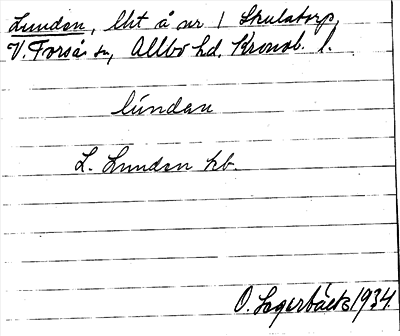 Lunden, lht å nr 1 Skulatorp,
V. Torsås sn, Allbo hd, Kronob. l.
lúndan
L. Lunden hb.
O. Lagerbäck 1934